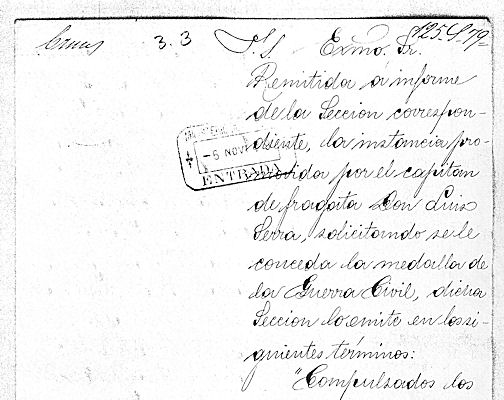 Cruces 3. 3
Exmo. Sr.
Remitida á informe
de la Seccion correspon-
diente, la instancia pro-
movida por el capitan
de fragata Don Luis
Serra, solicitando se le
conceda la medalla de
la Guerra Civil, dicha
Seccion lo emite en los si-
guientes términos:
"Compulsados los
-5 NOV
ENTRADA